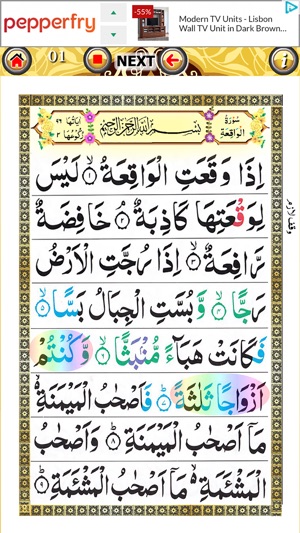 pepperfry
-55%
Modern TV Units - Lisbon
Wall TV Unit in Dark Brown...
01
NEXT
سُورَةُ الْوَاقِعَةِ
بِسْمِ اللّٰهِ الرَّحْمٰنِ الرَّحِيْمِ
اٰيَاتُهَا ٩٦
رُكُوْعُهَا ٣
اِذَا وَقَعَتِ الْوَاقِعَةُ ۙ﴿١﴾ لَيْسَ
لِوَقْعَتِهَا كَاذِبَةٌ ۘ﴿٢﴾ خَافِضَةٌ
رَّافِعَةٌ ۙ﴿٣﴾ اِذَا رُجَّتِ الْاَرْضُ
رَجًّا ۙ﴿٤﴾ وَّبُسَّتِ الْجِبَالُ بَسًّا ۙ﴿٥﴾
فَكَانَتْ هَبَآءً مُّنْۢبَثًّا ۙ﴿٦﴾ وَّكُنْتُمْ
اَزْوَاجًا ثَلٰثَةً ؕ﴿٧﴾ فَاَصْحٰبُ الْمَيْمَنَةِ ۙ
مَاۤ اَصْحٰبُ الْمَيْمَنَةِ ؕ﴿٨﴾ وَاَصْحٰبُ
الْمَشْـَٔمَةِ ۙ مَاۤ اَصْحٰبُ الْمَشْـَٔمَةِ ؕ﴿٩﴾
وقف لازم